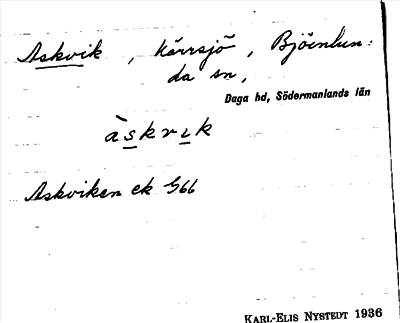 Askvik, Kärrsjö, Björnlun:
da sn,
Daga hd, Södermanlands län
àskvik
Askviken ek G66
KARL-ELIS NYSTEDT 1936